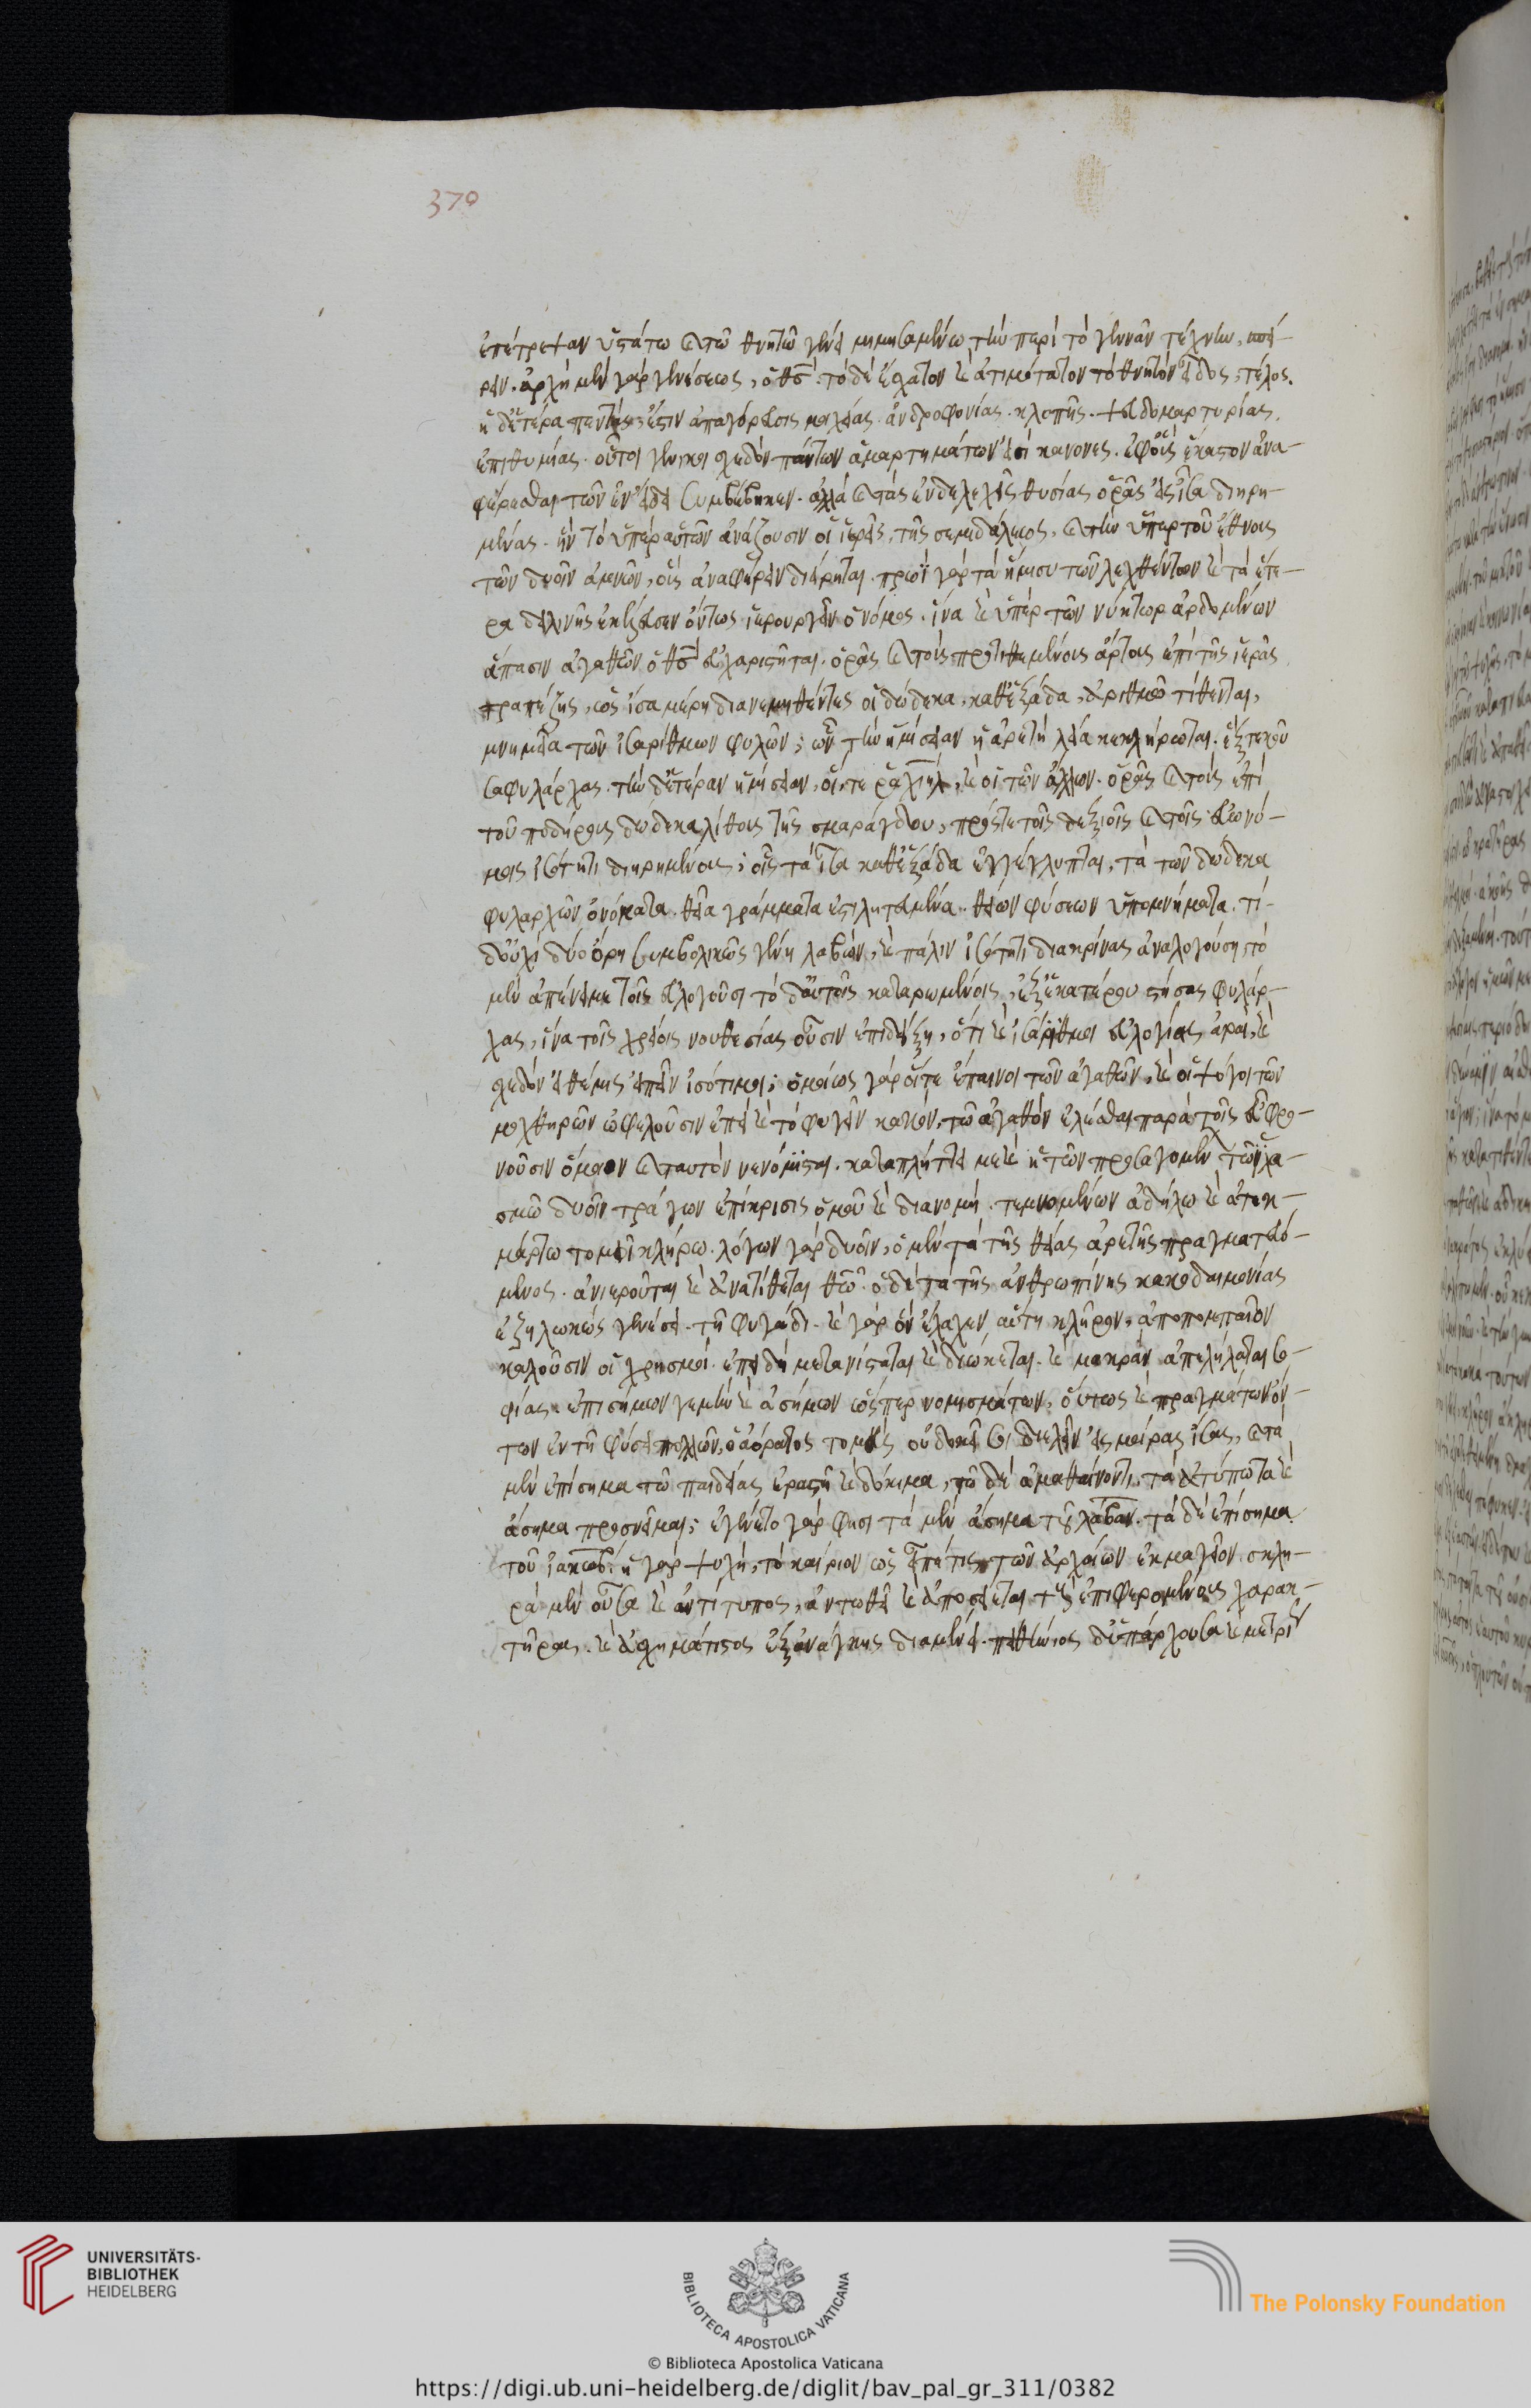 370
ἐπέτρεψαν ὑστάτω καὶ τῶ θνητῶ γένει μιμησαμένω τὴν περὶ τὸ γεννᾶν τέχνην, σπεί-
ρειν. ἀρχὴ μὲν γὰρ γενέσεως, ὁ θς. τὸ δὲ ἔσχατον καὶ ἀτιμότατον τὸ θνητὸν εἶδος, τέλος.
ἡ δ' ἑτέρα πεντάς ἐστιν ἀπαγόρευσις μοιχείας. ἀνδροφονίας. κλοπῆς. ψευδομαρτυρίας.
ἐπιθυμίας. οὗτοι γενικοὶ σχεδὸν πάντων ἁμαρτημάτων εἰσὶ κανόνες. ἐφ' οὓς ἕκαστον ἀνα-
φέρεσθαι τῶν ἐν εἴδει συμβέβηκεν. ἀλλὰ καὶ τὰς ἐνδελεχεῖς θυσίας ὁρᾶς εἰς ἴσα διηρη-
μένας. ἥν τε ὑπὲρ αὑτῶν ἀνάγουσιν οἱ ἱερεῖς, τῆς σεμιδάλεως. καὶ τὴν ὑπὲρ τοῦ ἔθνους
τῶν δυοῖν ἀμνῶν, οὓς ἀναφέρειν διείρηται. πρωῒ γὰρ τὰ ἡμίση τῶν λεχθέντων καὶ τὰ ἕτε-
ρα δειλινῆς ἐκέλευσεν ὄντως ἱερουργεῖν ὁ νόμος. ἵνα καὶ ὑπὲρ τῶν νύκτωρ ἀρδομένων
ἅπασιν ἀγαθῶν ὁ θς εὐχαριστῆται. ὁρᾶς καὶ τοὺς προτιθεμένους ἄρτους ἐπὶ τῆς ἱερᾶς
τραπέζης, ὡς ἴσα μέρη διανεμηθέντες οἱ δώδεκα, καθ' ἑξάδα, ἀριθμῶ τίθενται,
μνημεῖα τῶν ἰσαρίθμων φυλῶν; ὧν τὴν ἡμίσειαν ἡ ἀρετὴ λεία κεκλήρωται. ἓξ τεκοῦ
σα φυλάρχας. τὴν δ' ἑτέραν ἡμίσειαν, οἵ τε ῥαχιὴλ, καὶ οἱ τῶν ἄλλων. ὁρᾶς καὶ τοὺς ἐπὶ
τοῦ ποδήρους δώδεκα λίθους τῆς σμαράγδου, πρός τε τοῖς δεξιοῖς καὶ τοῖς εὐωνύ-
μοις ἰσότητι διηρημένους; οἷς τὰ ἴσα καθ' ἑξάδα ἐγγέγλυπται, τὰ τῶν δώδεκα
φυλαρχῶν ὀνόματα. θεῖα γράμματα ἐστηλιτευμένα. θείων φύσεων ὑπομνήματα. τί
δ' οὐχὶ δύο ὄρη συμβολικῶς γένη λαβὼν, καὶ πάλιν ἰσότητι διακρίνας ἀναλογούση, τὸ
μὲν ἀπένειμε τοῖς εὐλογοῦσι τὸ δ' αὖ τοῖς καταρωμένοις, ἓξ ἑκατέρου στήσας φυλάρ-
χας, ἵνα τοῖς χρείοις νουθεσίας οὖσιν ἐπιδείξη, ὅτι καὶ ἰσάριθμοι εὐλογίαις ἀραὶ, καὶ
σχεδὸν εἰ θέμις εἰπεῖν ἰσότιμοι; ὁμοίως γὰρ οἵ τε ἔπαινοι τῶν ἀγαθῶν, καὶ οἱ ψόγοι τῶν
μοχθηρῶν ὠφελοῦσιν ἐπεὶ καὶ τὸ φυγεῖν κακὸν, τῶ ἀγαθὸν ἑλέσθαι παρὰ τοῖς εὖ φρο-
νοῦσιν ὅμοιον καὶ ταυτὸν νενόμισται. καταπλήττει με καὶ ἡ τῶν προσαγομένων τῶ ἱλα-
σμῶ δυοῖν τράγων ἐπίκρισις ὁμοῦ καὶ διανομή. τεμνομένων ἀδήλω καὶ ἀτεκ-
μάρτω τομεῖ κλήρω. λόγων γὰρ δυοῖν, ὁ μὲν τὰ τῆς θείας ἀρετῆς πραγματευό-
μενος. ἀνιεροῦται καὶ ἀνατίθεται θεῶ. ὁ δὲ τὰ τῆς ἀνθρωπίνης κακοδαιμονίας
ἐζηλωκὼς γενέσει. τῆ φυγάδι. καὶ γὰρ ὃν ἔλαχεν αὕτη κλῆρον, ἀποπομπαῖον
καλοῦσιν οἱ χρησμοί. ἐπειδὴ μετανίσταται καὶ διώκεται. καὶ μακρὰν ἀπελήλαται σο-
φίας. ἐπισήμων γεμὴν καὶ ἀσήμων ὥσπερ νομισμάτων, οὕτως καὶ πραγμάτων ὄν-
των ἐν τῆ φύσει πολλῶν, ὁ ἀόρατος τομεὺς οὐ δοκεῖ σοι διελεῖν εἰς μοίρας ἴσας, καὶ τὰ
μὲν ἐπίσημα τῶ παιδείας ἐραστῆ καὶ δόκιμα, τῶ δὲ ἀμαθαίνοντι, τὰ ἀτύπωτα καὶ
ἄσημα προσνεῖμαι; ἐγένετο γὰρ φησι τὰ μὲν ἄσημα τοῦ λάβαν. τὰ δὲ ἐπίσημα
τοῦ ἰακώβ. ἡ γὰρ ψυχή, τὸ καίριον ὡς εἶπέ τις τῶν ἀρχαίων ἐκμαγεῖον. σκλη-
ρὰ μὲν οὖσα καὶ ἀντίτυπος, ἀντωθεῖ καὶ ἀποσείεται τοὺς ἐπιφερομένους χαρακ-
τῆρας. καὶ ἀσχημάτιστος ἐξ ἀνάγκης διαμένει. πειθήνιος δ' ὑπάρχουσα καὶ μετρίων
UNIVERSITÄTS-
BIBLIOTHEK
HEIDELBERG
BIBLIOTECA APOSTOLICA VATICANA
The Polonsky Foundation
© Biblioteca Apostolica Vaticana
https://digi.ub.uni-heidelberg.de/diglit/bav_pal_gr_311/0382